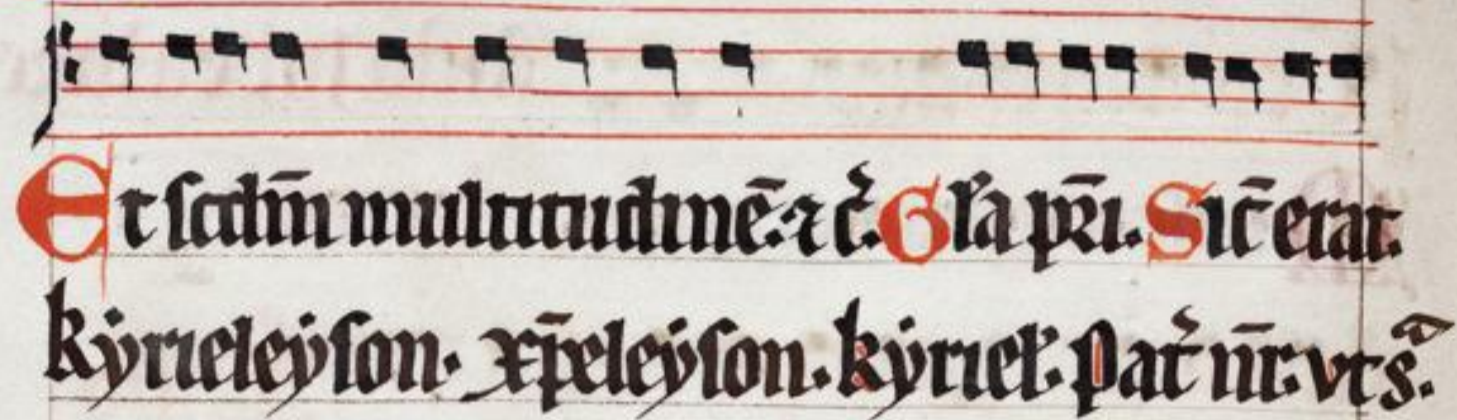 Et scdm̄ multitudinē. ⁊ c̃. Gl̃a pr̄i. Sic̄ erat.
kẏrieleẏson. xp̄eleẏson. kẏriel̃. Pat̃ nr̄. vt sᵃ.